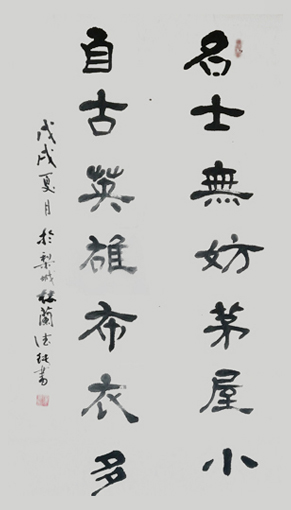 名士無妨茅屋小
自古英雄布衣多
戊戌夏月於梨城 蘭 書